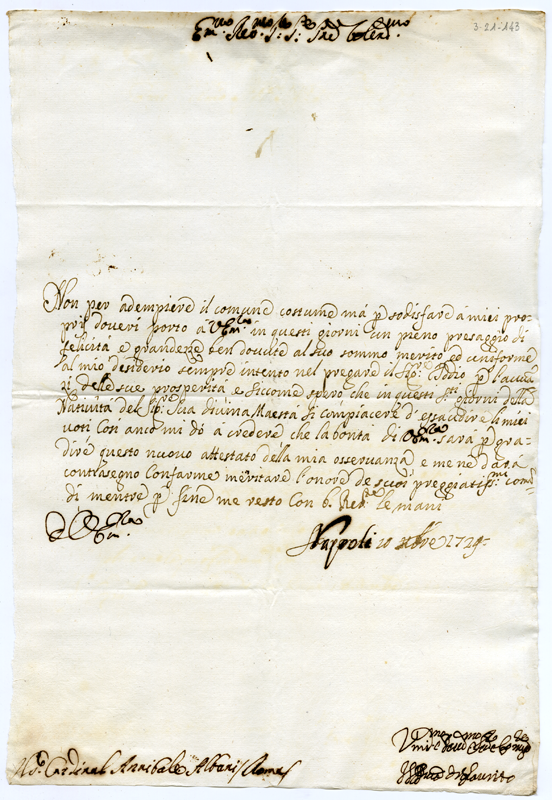 3-21-143
Em.mo Rev.mo S: S.
Non per adempiere il comune costume má p sodisfare à miei pro-
prij doveri porto a V. Em.za in questi giorni un pieno presaggio di
felicità e grandezze ben dovute al suo sommo merito ed uniforme
al mio desiderio sempre intento nel pregare il Sig.re Iddio p l'avvan
zi delle sue prosperità e siccome spero che in questi S.ti giorni della
Natività del Sig.re Sua divina Maestà si compiacerà d'essaudire li miei
voti così anco mi dò a credere che la bontà di V. Em.za sarà p gra-
dire questo nuovo attestato della mia osservanza e me ne darà
contrasegno con farme meritare l'onore de suoi preggiatis.mi coman-
di mentre p fine me resto con b. le mani
D. V. Em.za
Napoli 10 Xbre 1729.
Cardinal Annibale Albani Roma